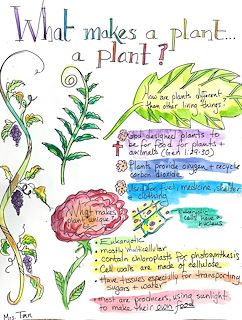 What makes a plant...
a plant?
How are plants different
than other living things?
God designed plants to
be for food for plants +
animals (Gen 1:29-30)
Plants provide oxygen + recycle
carbon dioxide
Used for fuel, medicine, shelter,
clothing
What makes
plants unique?
Eukaryotic
cells have a
nucleus
Eukaryotic
mostly multicellular
contain chloroplasts for photosynthesis
Cell walls are made of cellulose
Have tissues especially for transporting
sugars + water
Most are producers, using sunlight
to make their own food